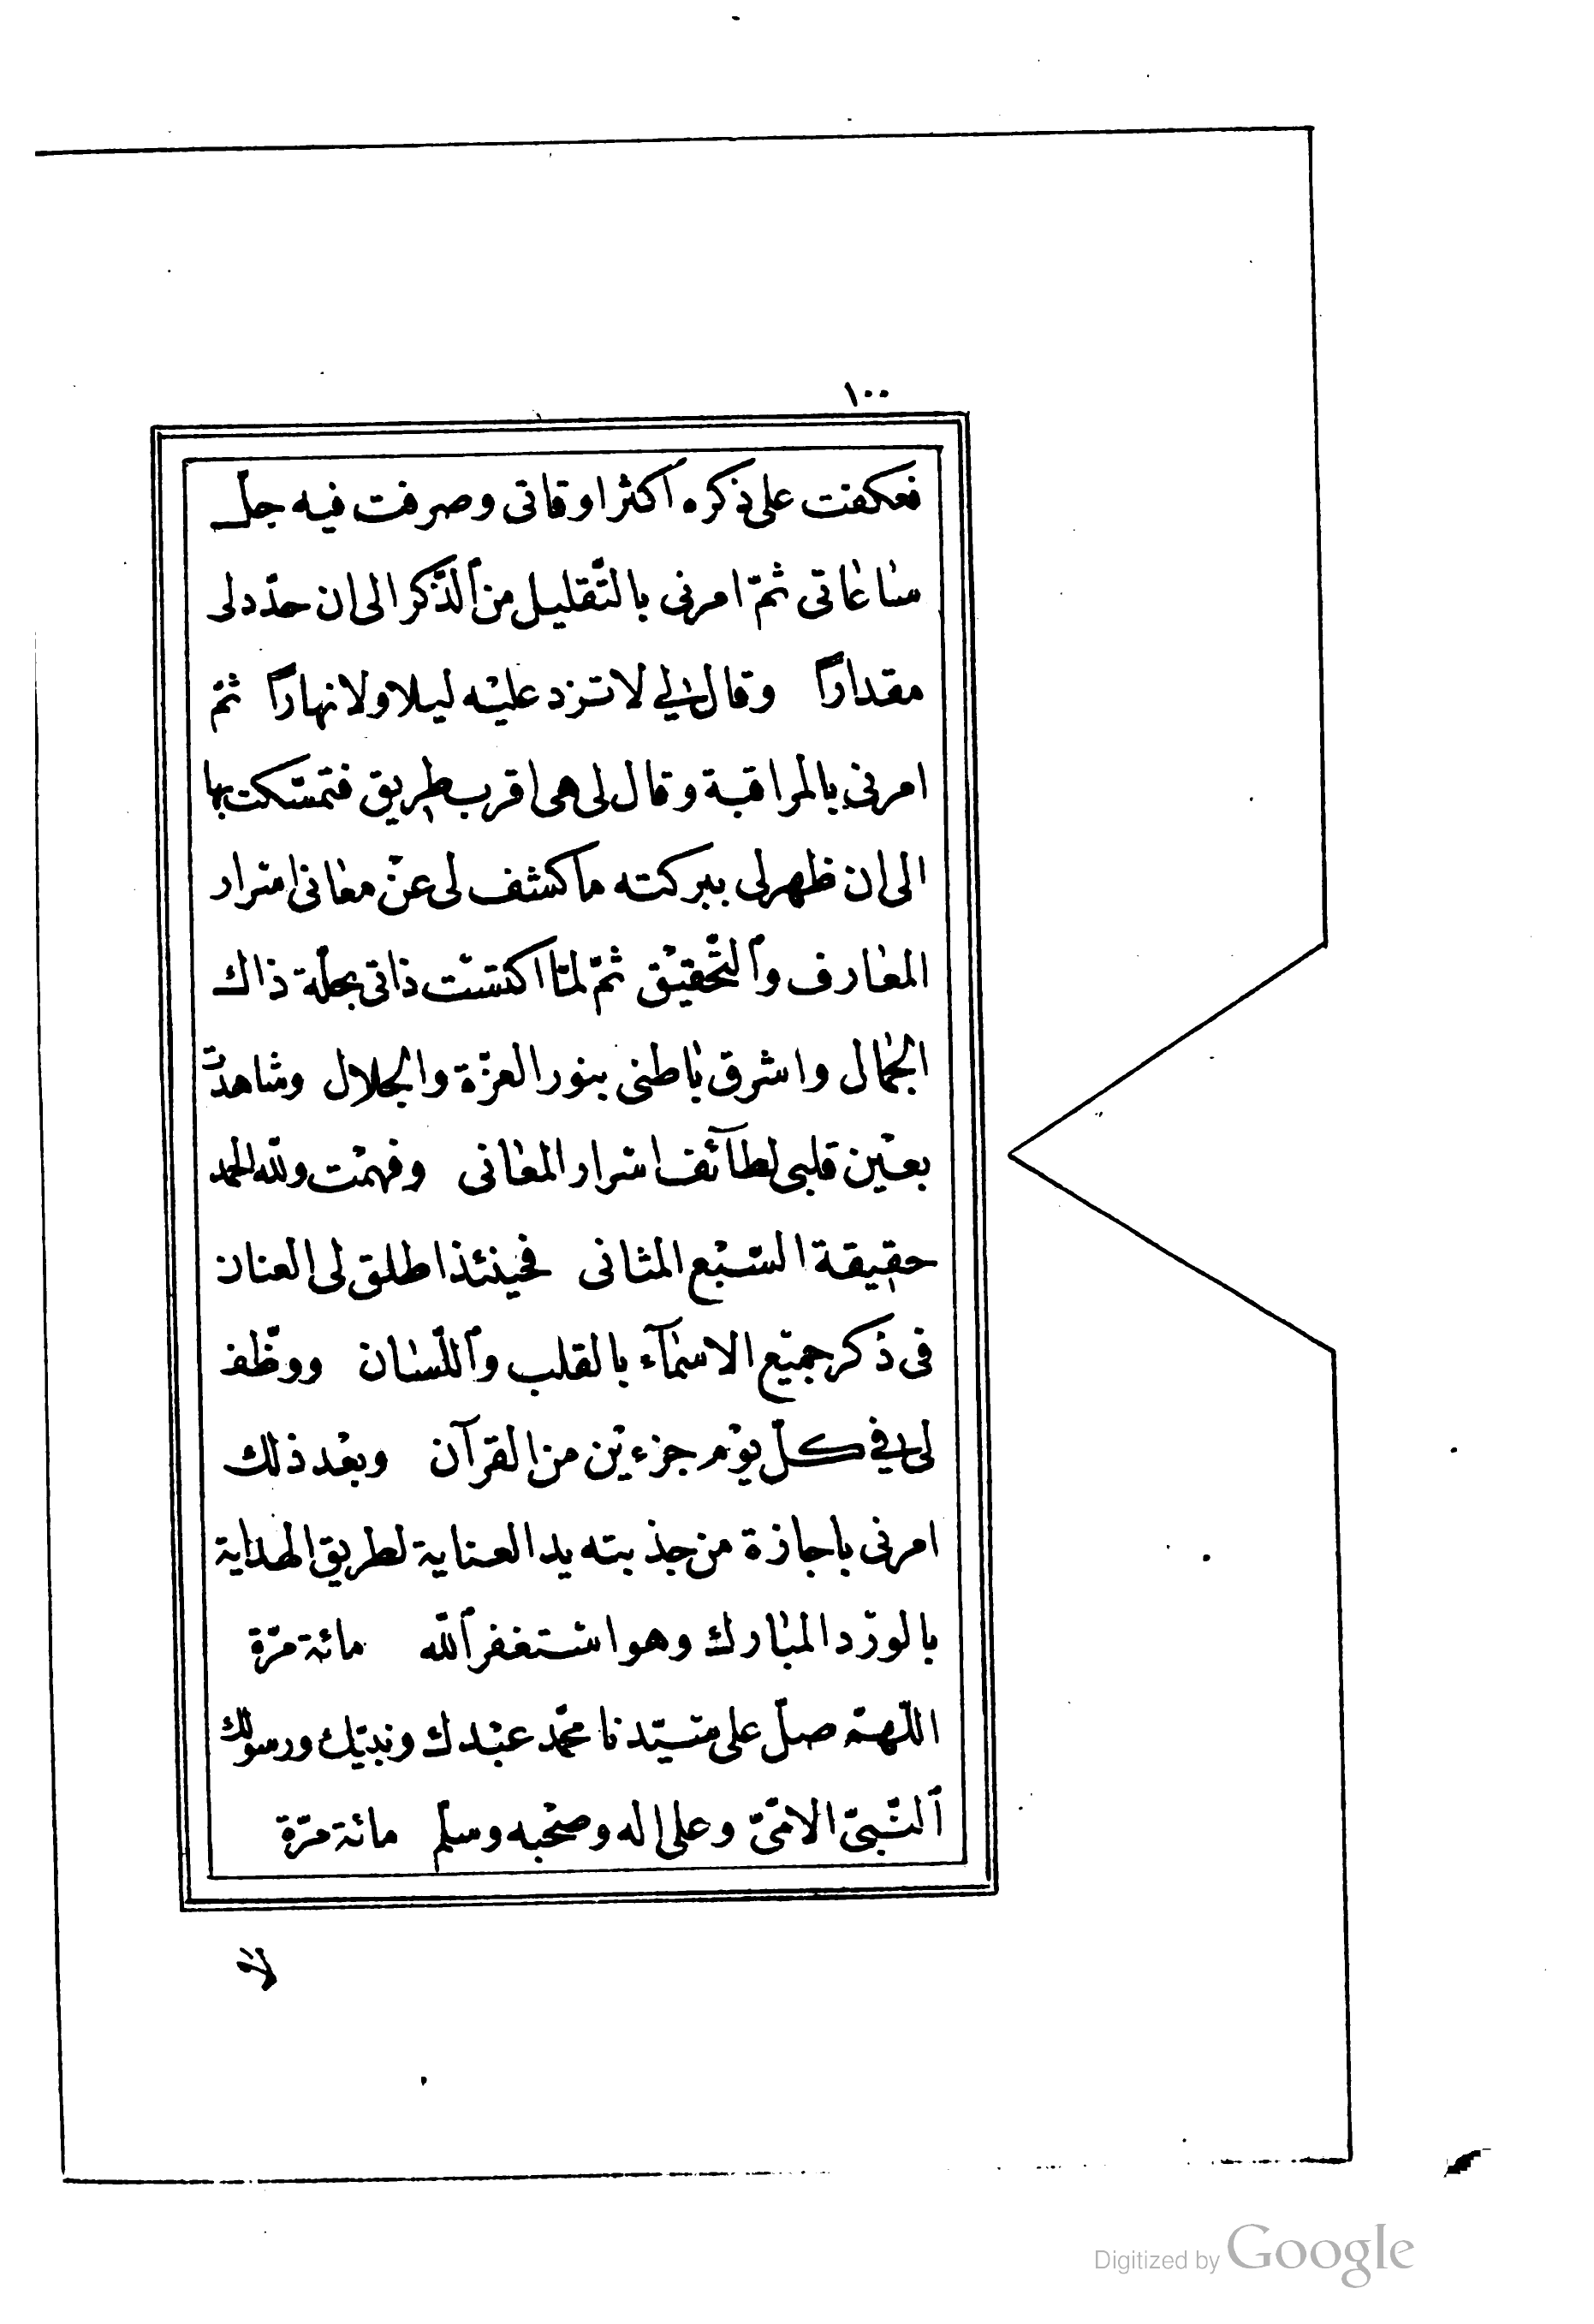 ١٠٠
فعكفت على ذكره اكثر اوقاتى وصرفت فيه جلّ
ساعاتى ثمّ امرنى بالتّقليل من ٱلذّكر الى ان حدّد لى
مقدارًا وقال لي لا تزد عليْه ليلا ولا نهارًا ثمّ
امرنى بالمراقبة وقال لى هى اقرب طريق فتمسّكت بها
الى ان ظهر لى ببركته ما كشف لى عنْ معانى اسْرار
المعارف وٱلتّحْقيْق ثمّ لمّا اكتسْت ذاتى بحلّة ذاك
الجمال واشرق باطنى بنور العزّة والجلال وشاهدتّ
بعيْن قلبى لطآئف اسْرار المعانى وفهمْت ولله الحمد
حقيقة السّبْع المثانى فحينئذ اطلق لى العنان
فى ذكر جميْع الاسْمآء بالقلب وٱللّسان ووظّف
لى في كلّ يوْم جزءيْن من القرآن وبعْد ذلك
امرنى باجازة من جذبته يد العناية لطريق الهداية
بالورْد المبارك وهو اسْتغفر ٱللّه مائة مرّة
اللّهمّ صلّ على سيّدنا محمّد عبْدك ونبيّك ورسولك
ٱلنّبىّ الامّىّ وعلى اله وصحْبه وسلّم مائة مرّة
لا
Digitized by Google